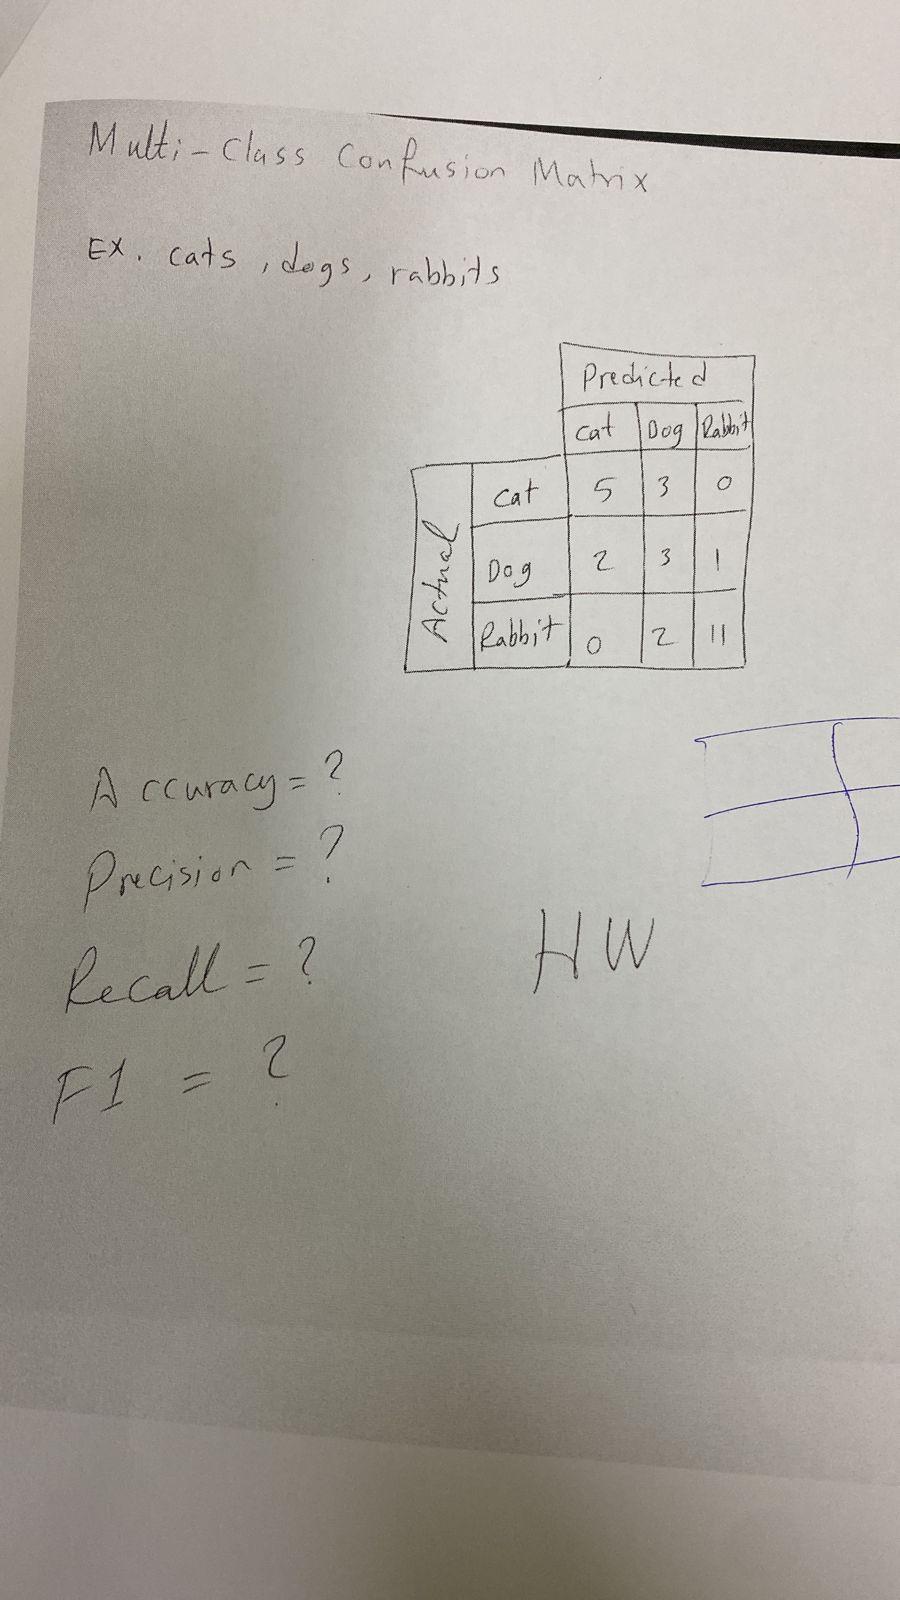 Multi-Class Confusion Matrix
Ex. cats, dogs, rabbits
Predicted
Cat Dog Rabbit
Actual
Cat 5 3 0
Dog 2 3 1
Rabbit 0 2 11
Accuracy = ?
Precision = ?
Recall = ?
HW
F1 = ?